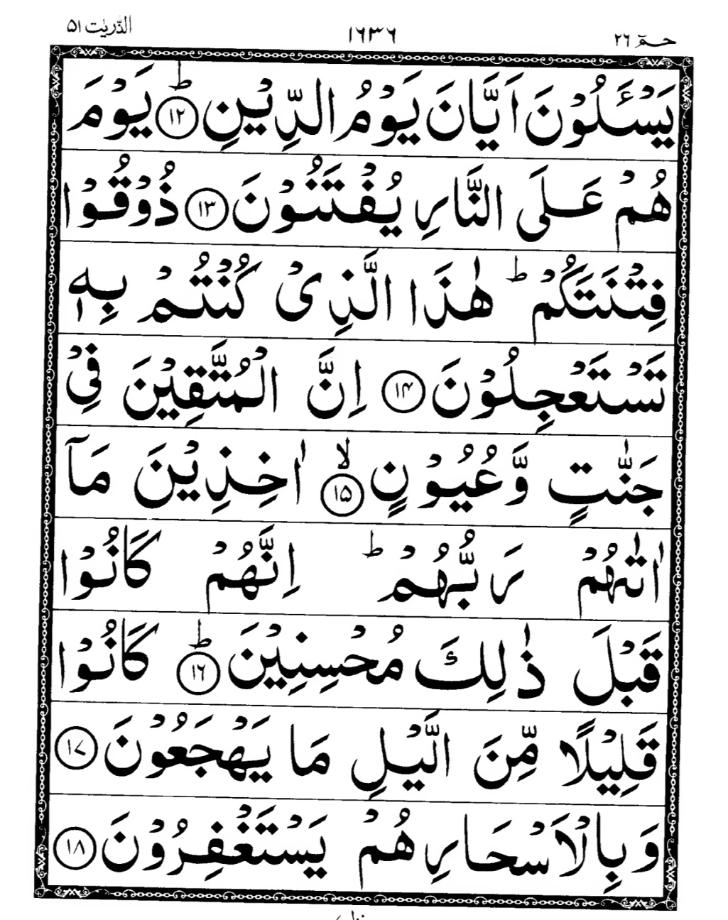 حٰمٓ ٢٦ ١٦٣٦ الذّٰريٰت ٥١
يَسْـَٔلُوْنَ اَيَّانَ يَوْمُ الدِّيْنِ ؕ﴿۱۲﴾ يَوْمَ
هُمْ عَلَى النَّارِ يُفْتَنُوْنَ ﴿۱۳﴾ ذُوْقُوْا
فِتْنَتَكُمْ ؕ هٰذَا الَّذِىْ كُنْتُمْ بِهٖ
تَسْتَعْجِلُوْنَ ﴿۱۴﴾ اِنَّ الْمُتَّقِيْنَ فِىْ
جَنّٰتٍ وَّعُيُوْنٍ ۙ﴿۱۵﴾ اٰخِذِيْنَ مَاۤ
اٰتٰٮهُمْ رَبُّهُمْ ؕ اِنَّهُمْ كَانُوْا
قَبْلَ ذٰلِكَ مُحْسِنِيْنَ ؕ﴿۱۶﴾ كَانُوْا
قَلِيْلًا مِّنَ الَّيْلِ مَا يَهْجَعُوْنَ ﴿۱۷﴾
وَبِالْاَسْحَارِ هُمْ يَسْتَغْفِرُوْنَ ﴿۱۸﴾